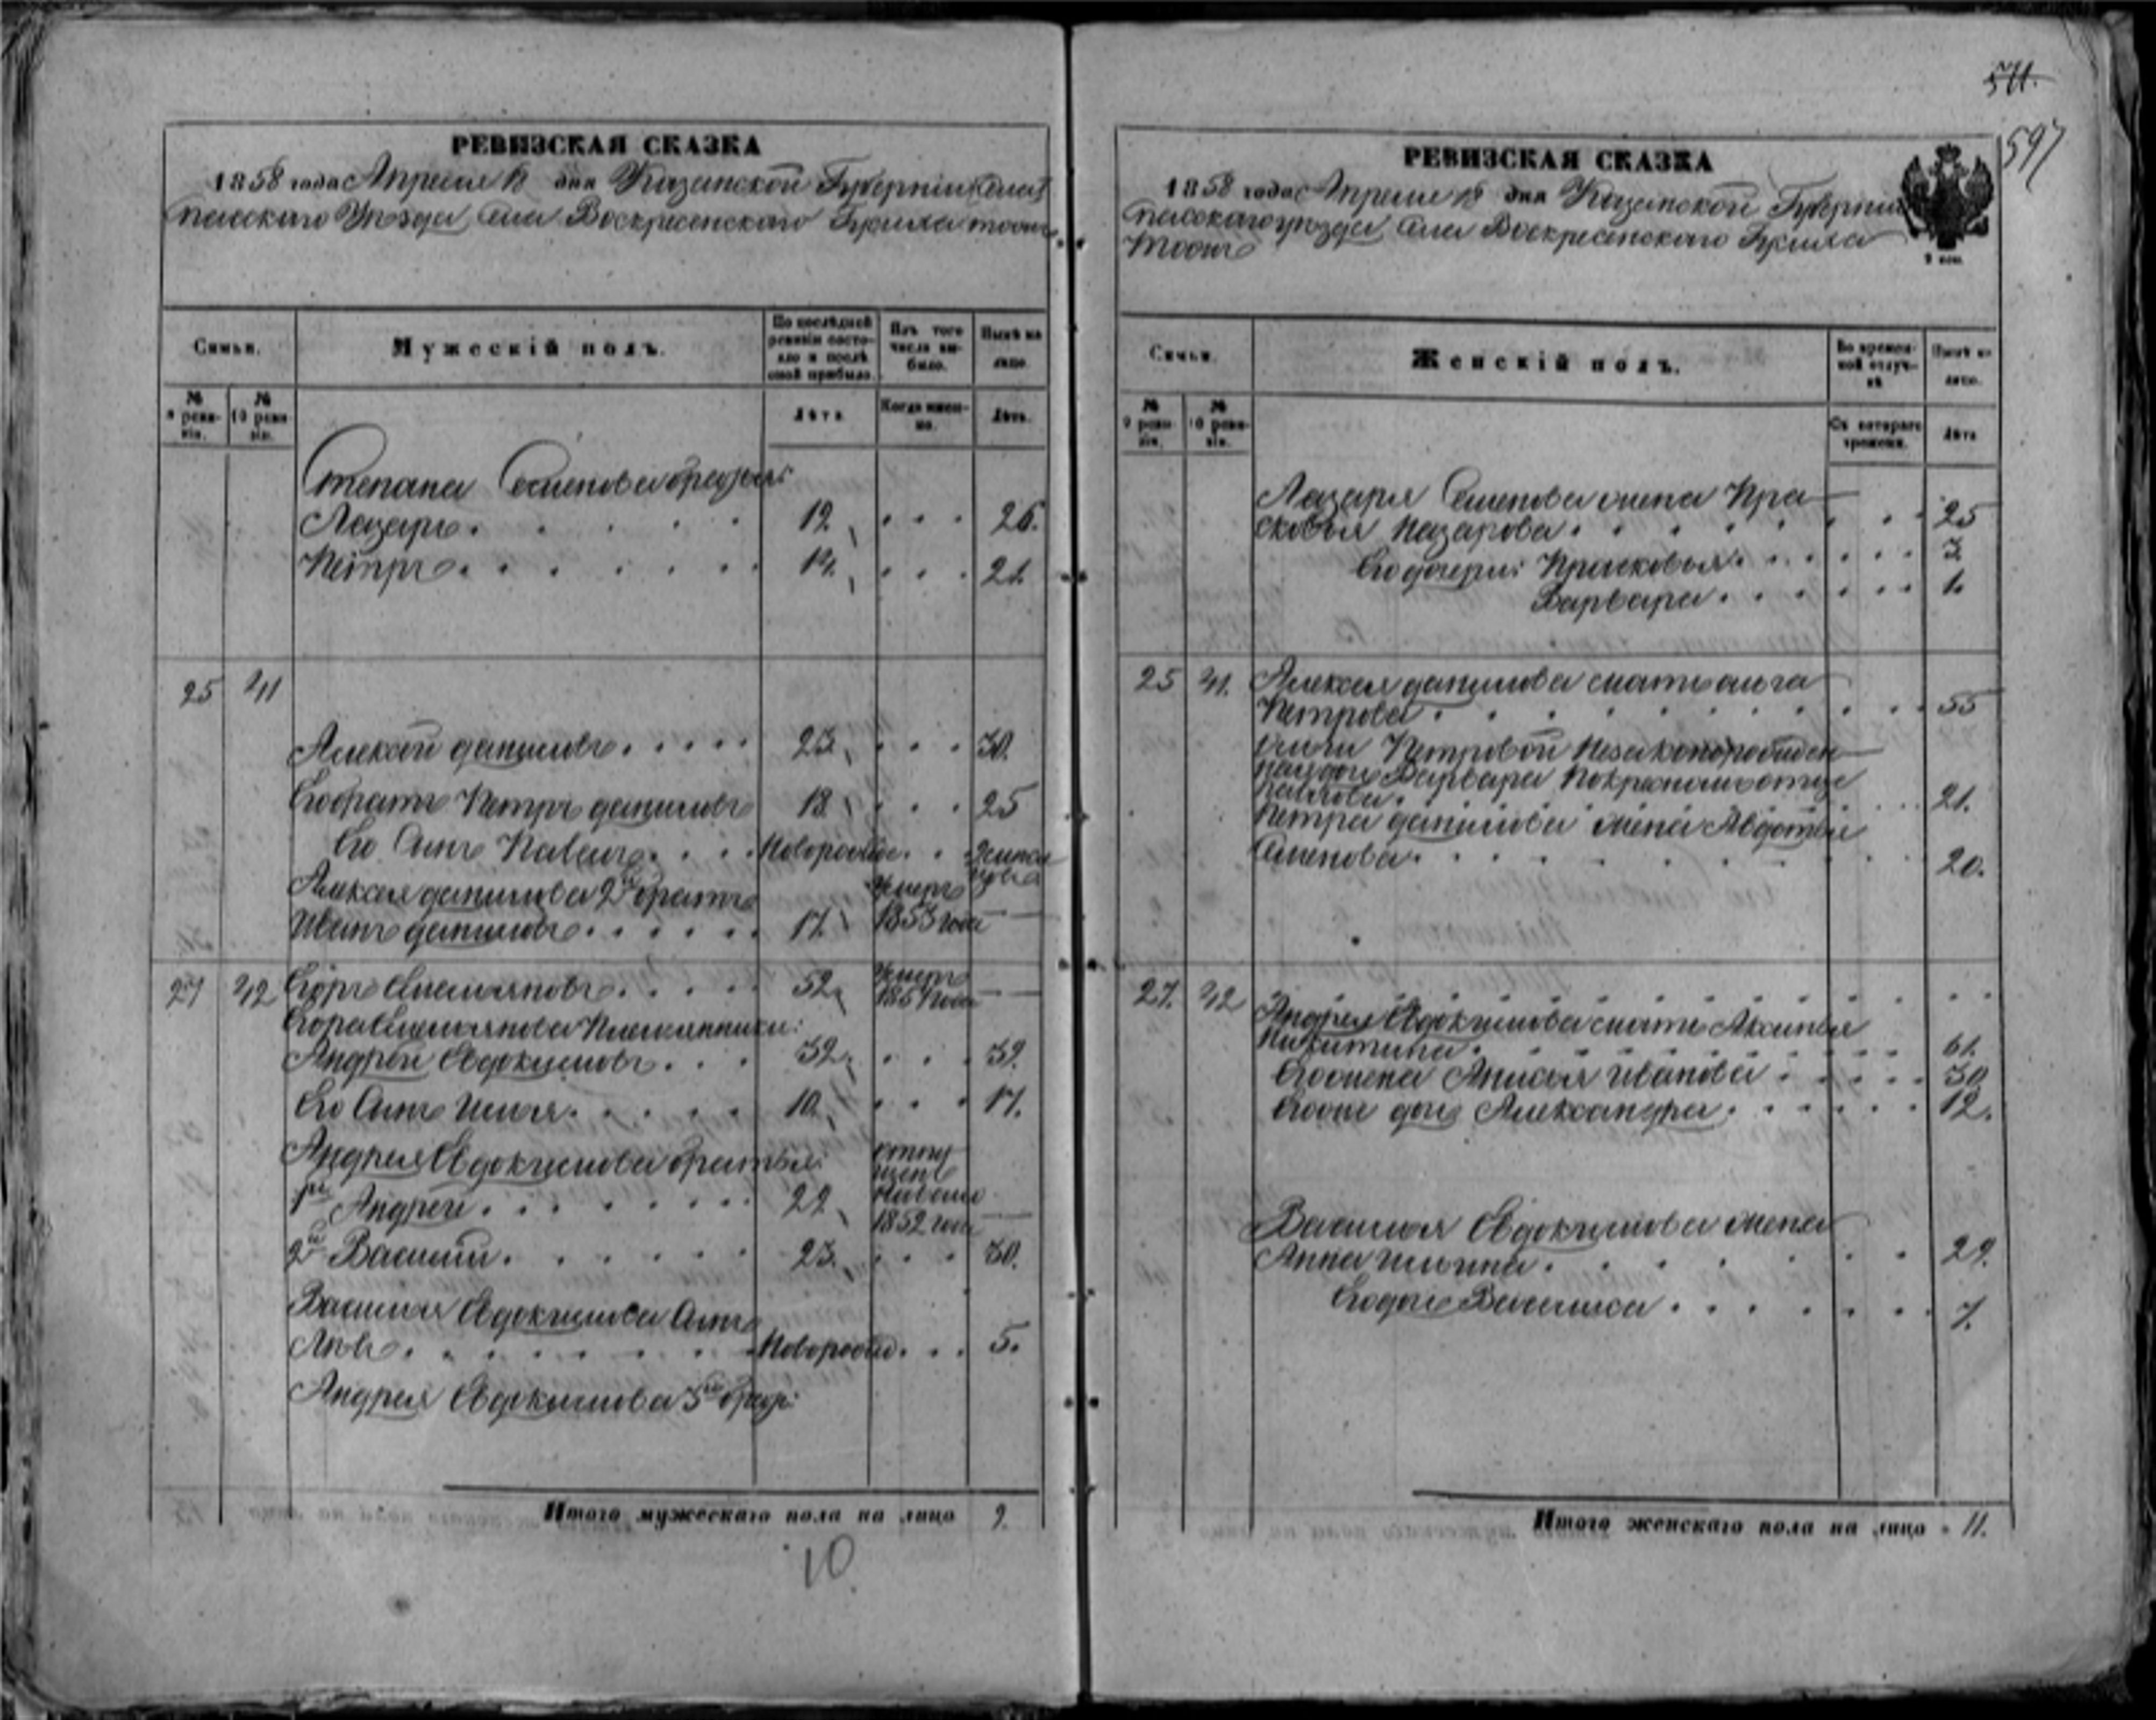 РЕВИЗСКАЯ СКАЗКА
1858 года Апреля 18 дня Казанской Губерніи Спас
скаго Уезда Села Воскресенскаго тожъ
Семьи.
Мужескій полъ.
По послѣдней ревизіи состояло и послѣ оной прибыло.
Изъ того числа выбыло.
Нынѣ на лицо.
№ 9 ревизіи.
№ 10 ревизіи.
Лѣта.
Когда именно.
Лѣта.
Степана Семенова братья:
Лазарь 19. 26.
Петръ 14. 21.
25 41
Алексей данилов 23. 30.
Его братъ Петръ данилов 18. 25
Его Сынъ Павелъ Новорожд
Алексея данилова 2й братъ
Иванъ данилов 17. умеръ 1853 года
27 42 Егоръ Емельянов 52. умеръ 1854 года
Егора Емельянова Племянники:
Андрей Евдокимовъ 32. 39.
Его Сынъ Илья 10. 17.
Андрея Евдокимова братья:
1й Андрей 22. 1852 года
2й Василий 23. 30.
Василия Евдокимова Сынъ
Левъ Новорожд 5.
Андрея Евдокимова 3й братъ
Итого мужескаго пола на лицо 9.
10
571.
597
РЕВИЗСКАЯ СКАЗКА
1858 года Апреля 18 дня Казанской Губерніи
Спасскаго уезда Села Воскресенскаго
тожъ
Семьи.
Женскій полъ.
Во временной отлучкѣ
Нынѣ на лицо.
№ 9 ревизіи.
№ 10 ревизіи.
Съ котораго времени.
Лѣта
Лазаря Семенова жена Пра
сковья Назарова 25
Его дочери: Прасковья 3
Варвара 1.
25 41. Алексея данилова мать
Петрова 55
Петровой Незаконорожден
ная дочь Варвара по крестномъ отце
21.
Петра данилова жена Авдотья
Семенова 20.
27. 42
Андрея Евдокимова мать Аксинья
Никитина 61.
Его жена Анисья Иванова 30
Его дочь Александра 12.
Василия Евдокимова жена
Анна Ильина 29.
Его дочь Василиса 7.
Итого женскаго пола на лицо 11.